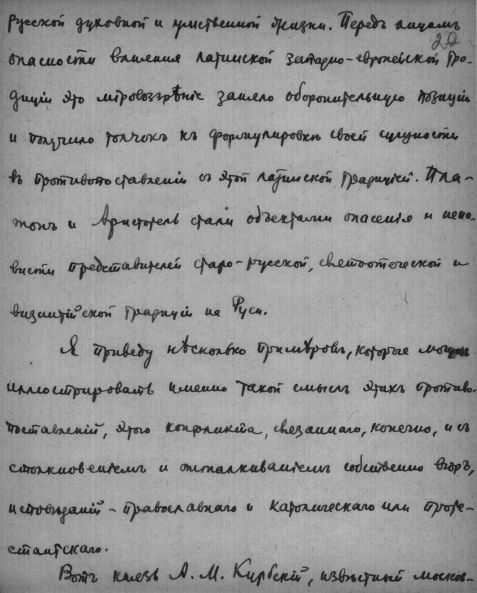 русской духовной и умственной жизни. Передъ лицомъ
22
опасности вліянія латинской западно-европейской тра-
диціи это міровоззрѣніе заняло оборонительную позицію
и получило толчокъ къ формулировкѣ своей сущности
въ противопоставленіи съ этой латинской традиціей. Пла-
тонъ и Аристотель стали объектами опасенія и нена-
висти представителей старо-русской, святоотеческой и
византійской традиціи на Руси.
Я приведу нѣсколько примѣровъ, которые могутъ
иллюстрировать именно такой смыслъ этихъ противо-
поставленій, этого конфликта, связаннаго, конечно, и съ
столкновеніемъ и отталкиваніемъ собственно вѣръ,
исповѣданій - православнаго и католическаго или проте-
стантскаго.
Вотъ князь А. М. Курбскій, извѣстный москов-